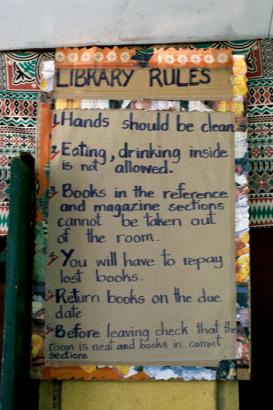 LIBRARY RULES
1. Hands should be clean
2. Eating, drinking inside
is not allowed.
3. Books in the reference
and magazine sections
cannot be taken out
of the room.
4. You will have to repay
lost books.
5. Return books on the due
date
6. Before leaving check that the
room is neat and books in correct
sections